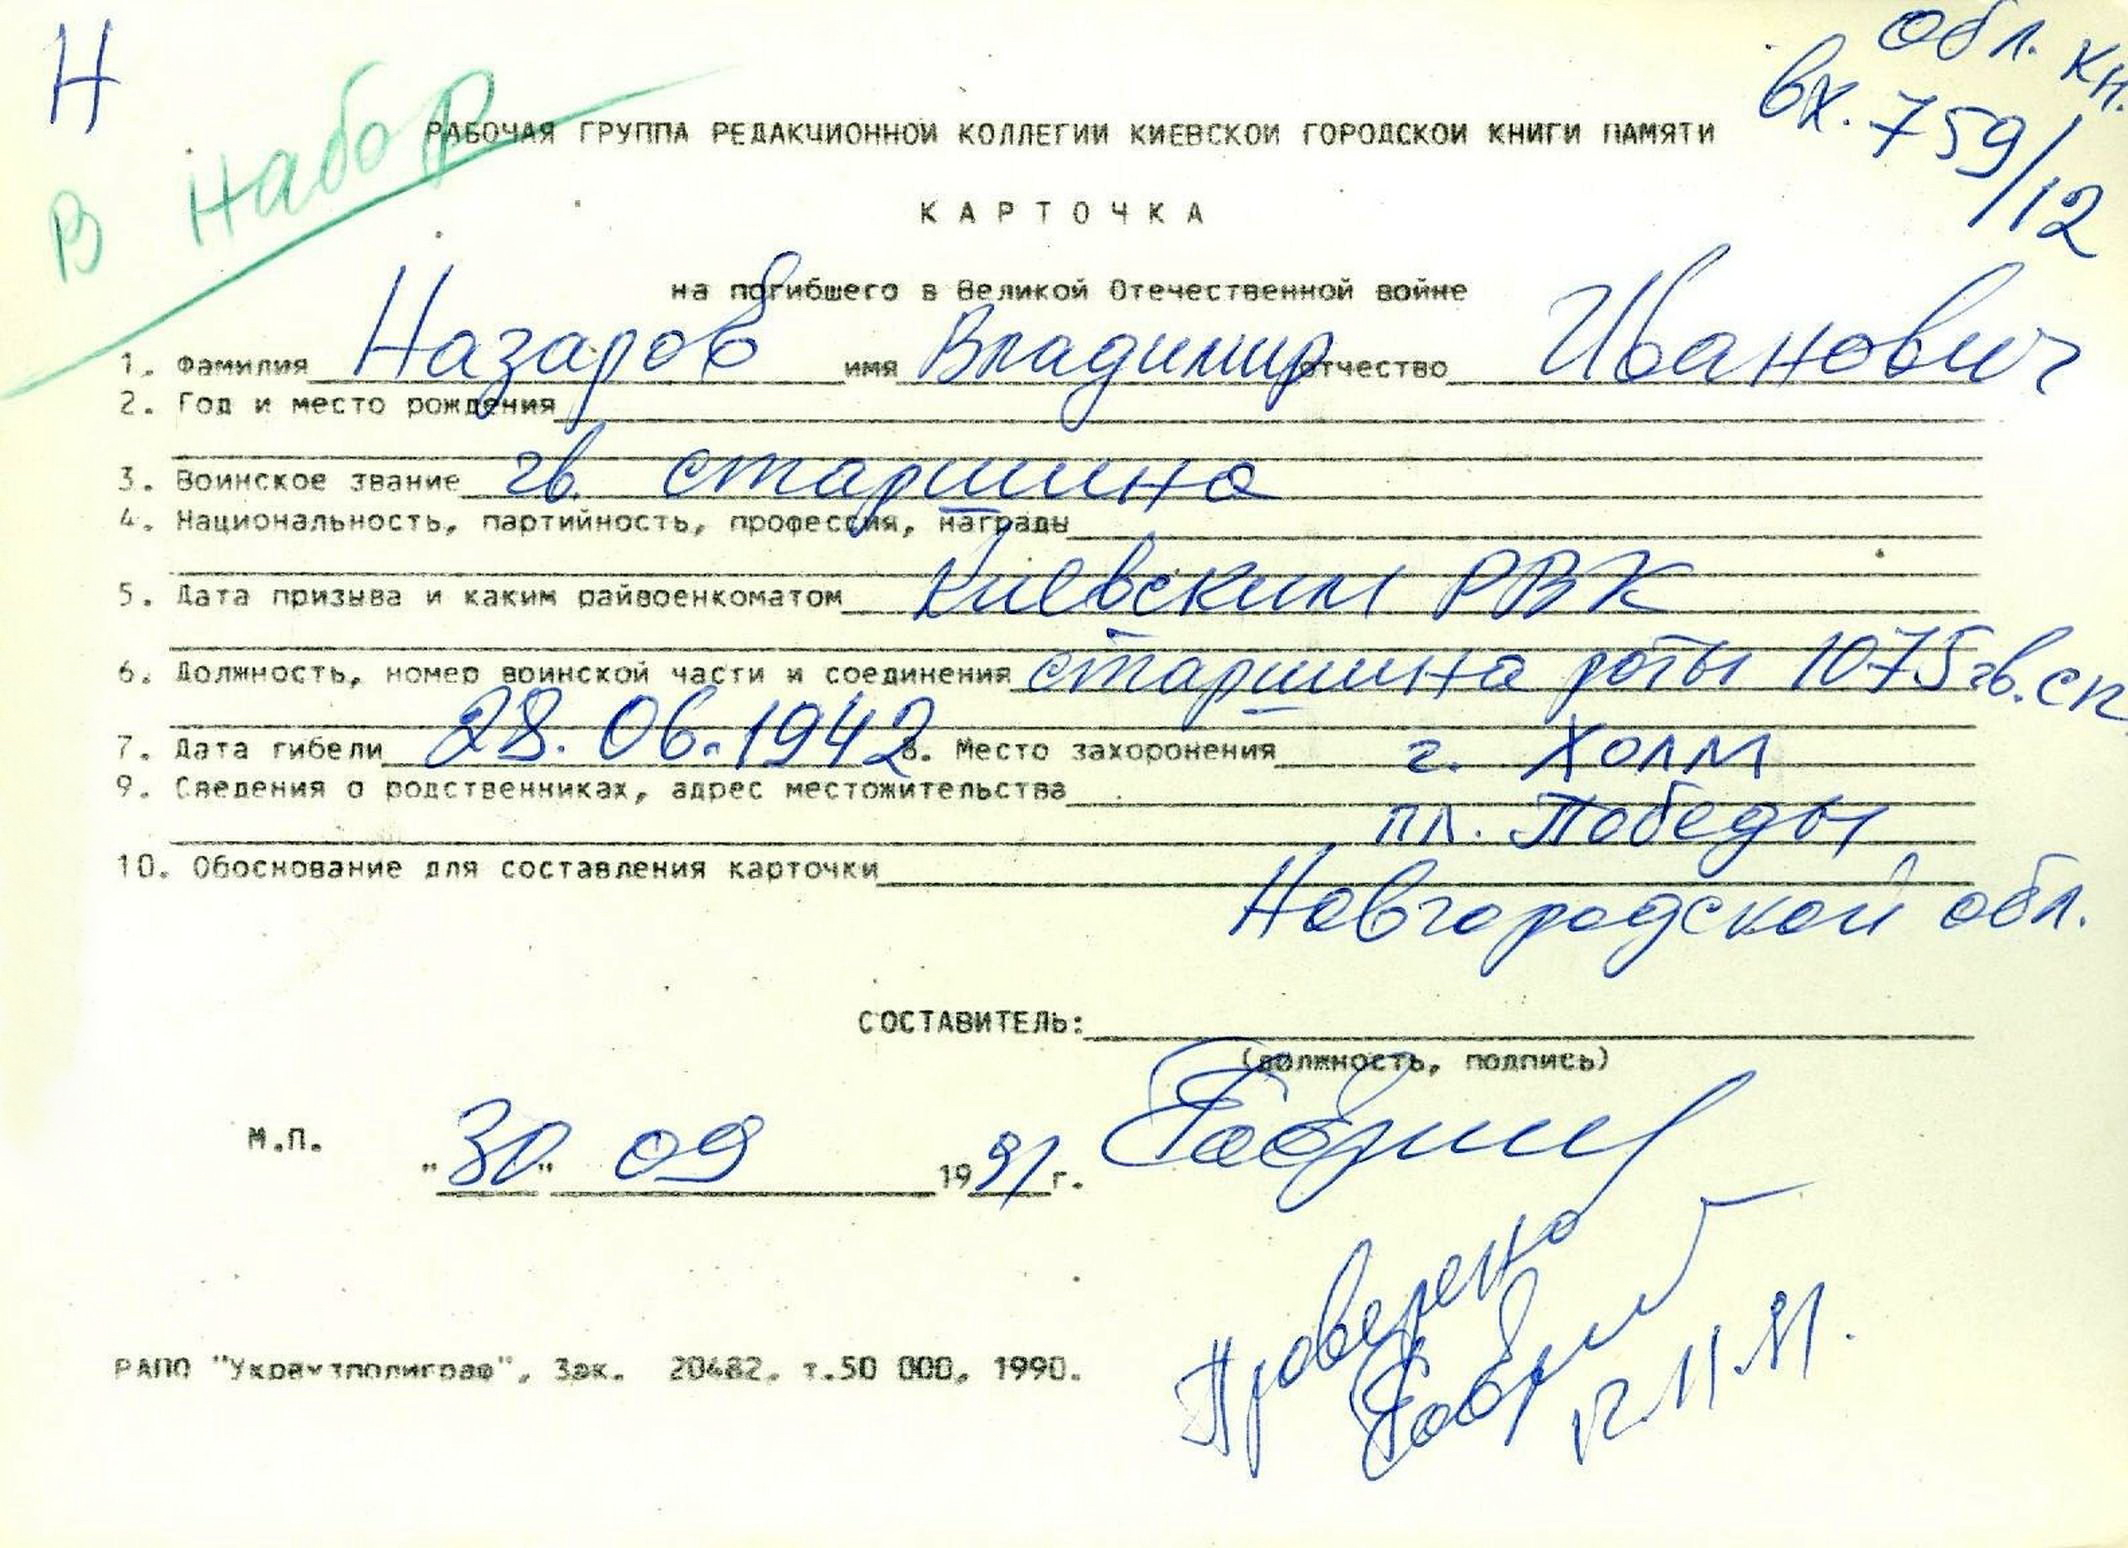 Н
обл. кн.
вх. 759/12
В набор
РАБОЧАЯ ГРУППА РЕДАКЦИОННОЙ КОЛЛЕГИИ КИЕВСКОЙ ГОРОДСКОЙ КНИГИ ПАМЯТИ
КАРТОЧКА
на погибшего в Великой Отечественной войне
1. Фамилия Назаров имя Владимир отчество Иванович
2. Год и место рождения
3. Воинское звание гв. старшина
4. Национальность, партийность, профессия, награды
5. Дата призыва и каким райвоенкоматом Киевским РВК
6. Должность, номер воинской части и соединения старшина роты 1075 гв. сп
7. Дата гибели 28.06.1942 8. Место захоронения г. Холм
9. Сведения о родственниках, адрес местожительства
пл. Победы
10. Обоснование для составления карточки
Новгородской обл.
СОСТАВИТЕЛЬ:
(должность, подпись)
М.П.
"30" 09 1991 г.
Проверено
12.11.91.
РАПО "Укрвузполиграф", Зак. 20482, т.50 000, 1990.